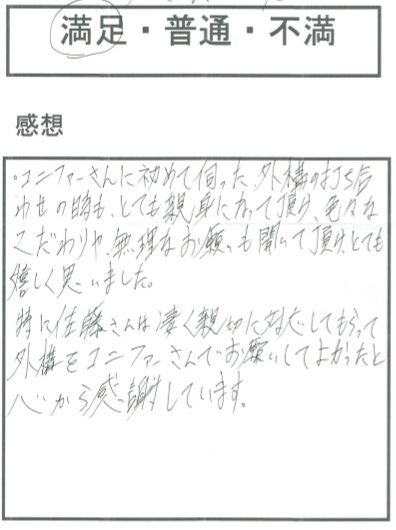 満足・普通・不満
感想
・コニファーさんに初めて伺った、外構の打ち合
わせの時も、とても親身になって頂け、色々な
こだわりや、無理なお願いも聞いて頂け、とても
嬉しく思いました。
特に佐藤さんは凄く親切に対応してもらって
外構をコニファーさんでお願いしてよかったと
心から感謝しています。